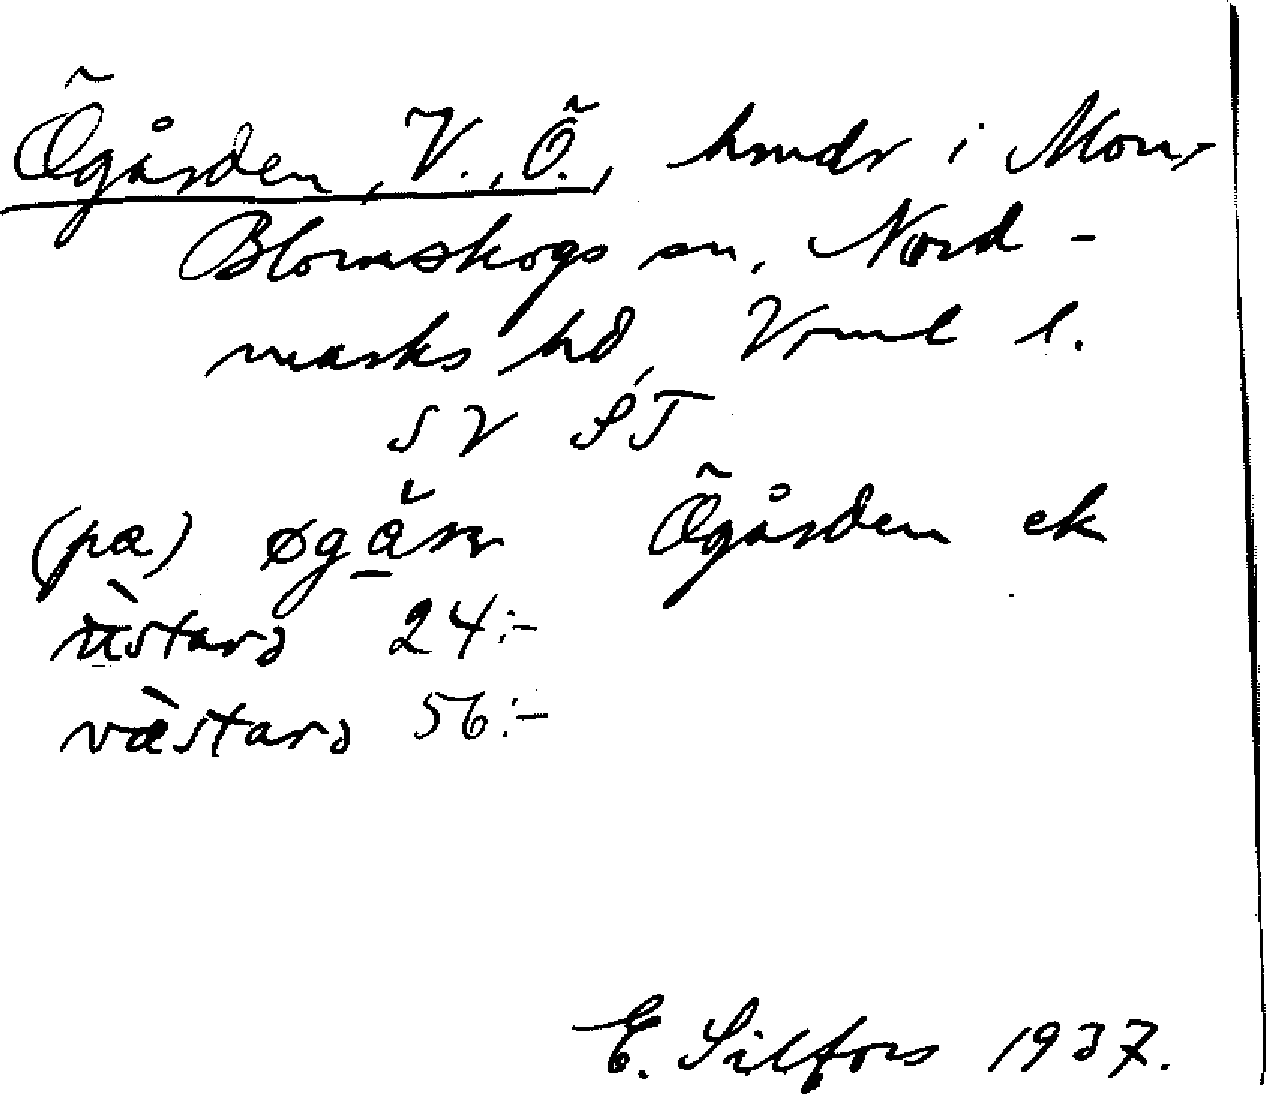 Ögården, V., Ö., hmdr i Mon,
Blomskogs sn, Nord-
marks hd, Vrml l.
SV ST
(pa) øgå̱ɽn Ögården ek
ùstarɔ 24:-
væ̀starɔ 56:-
E. Silfors 1937.